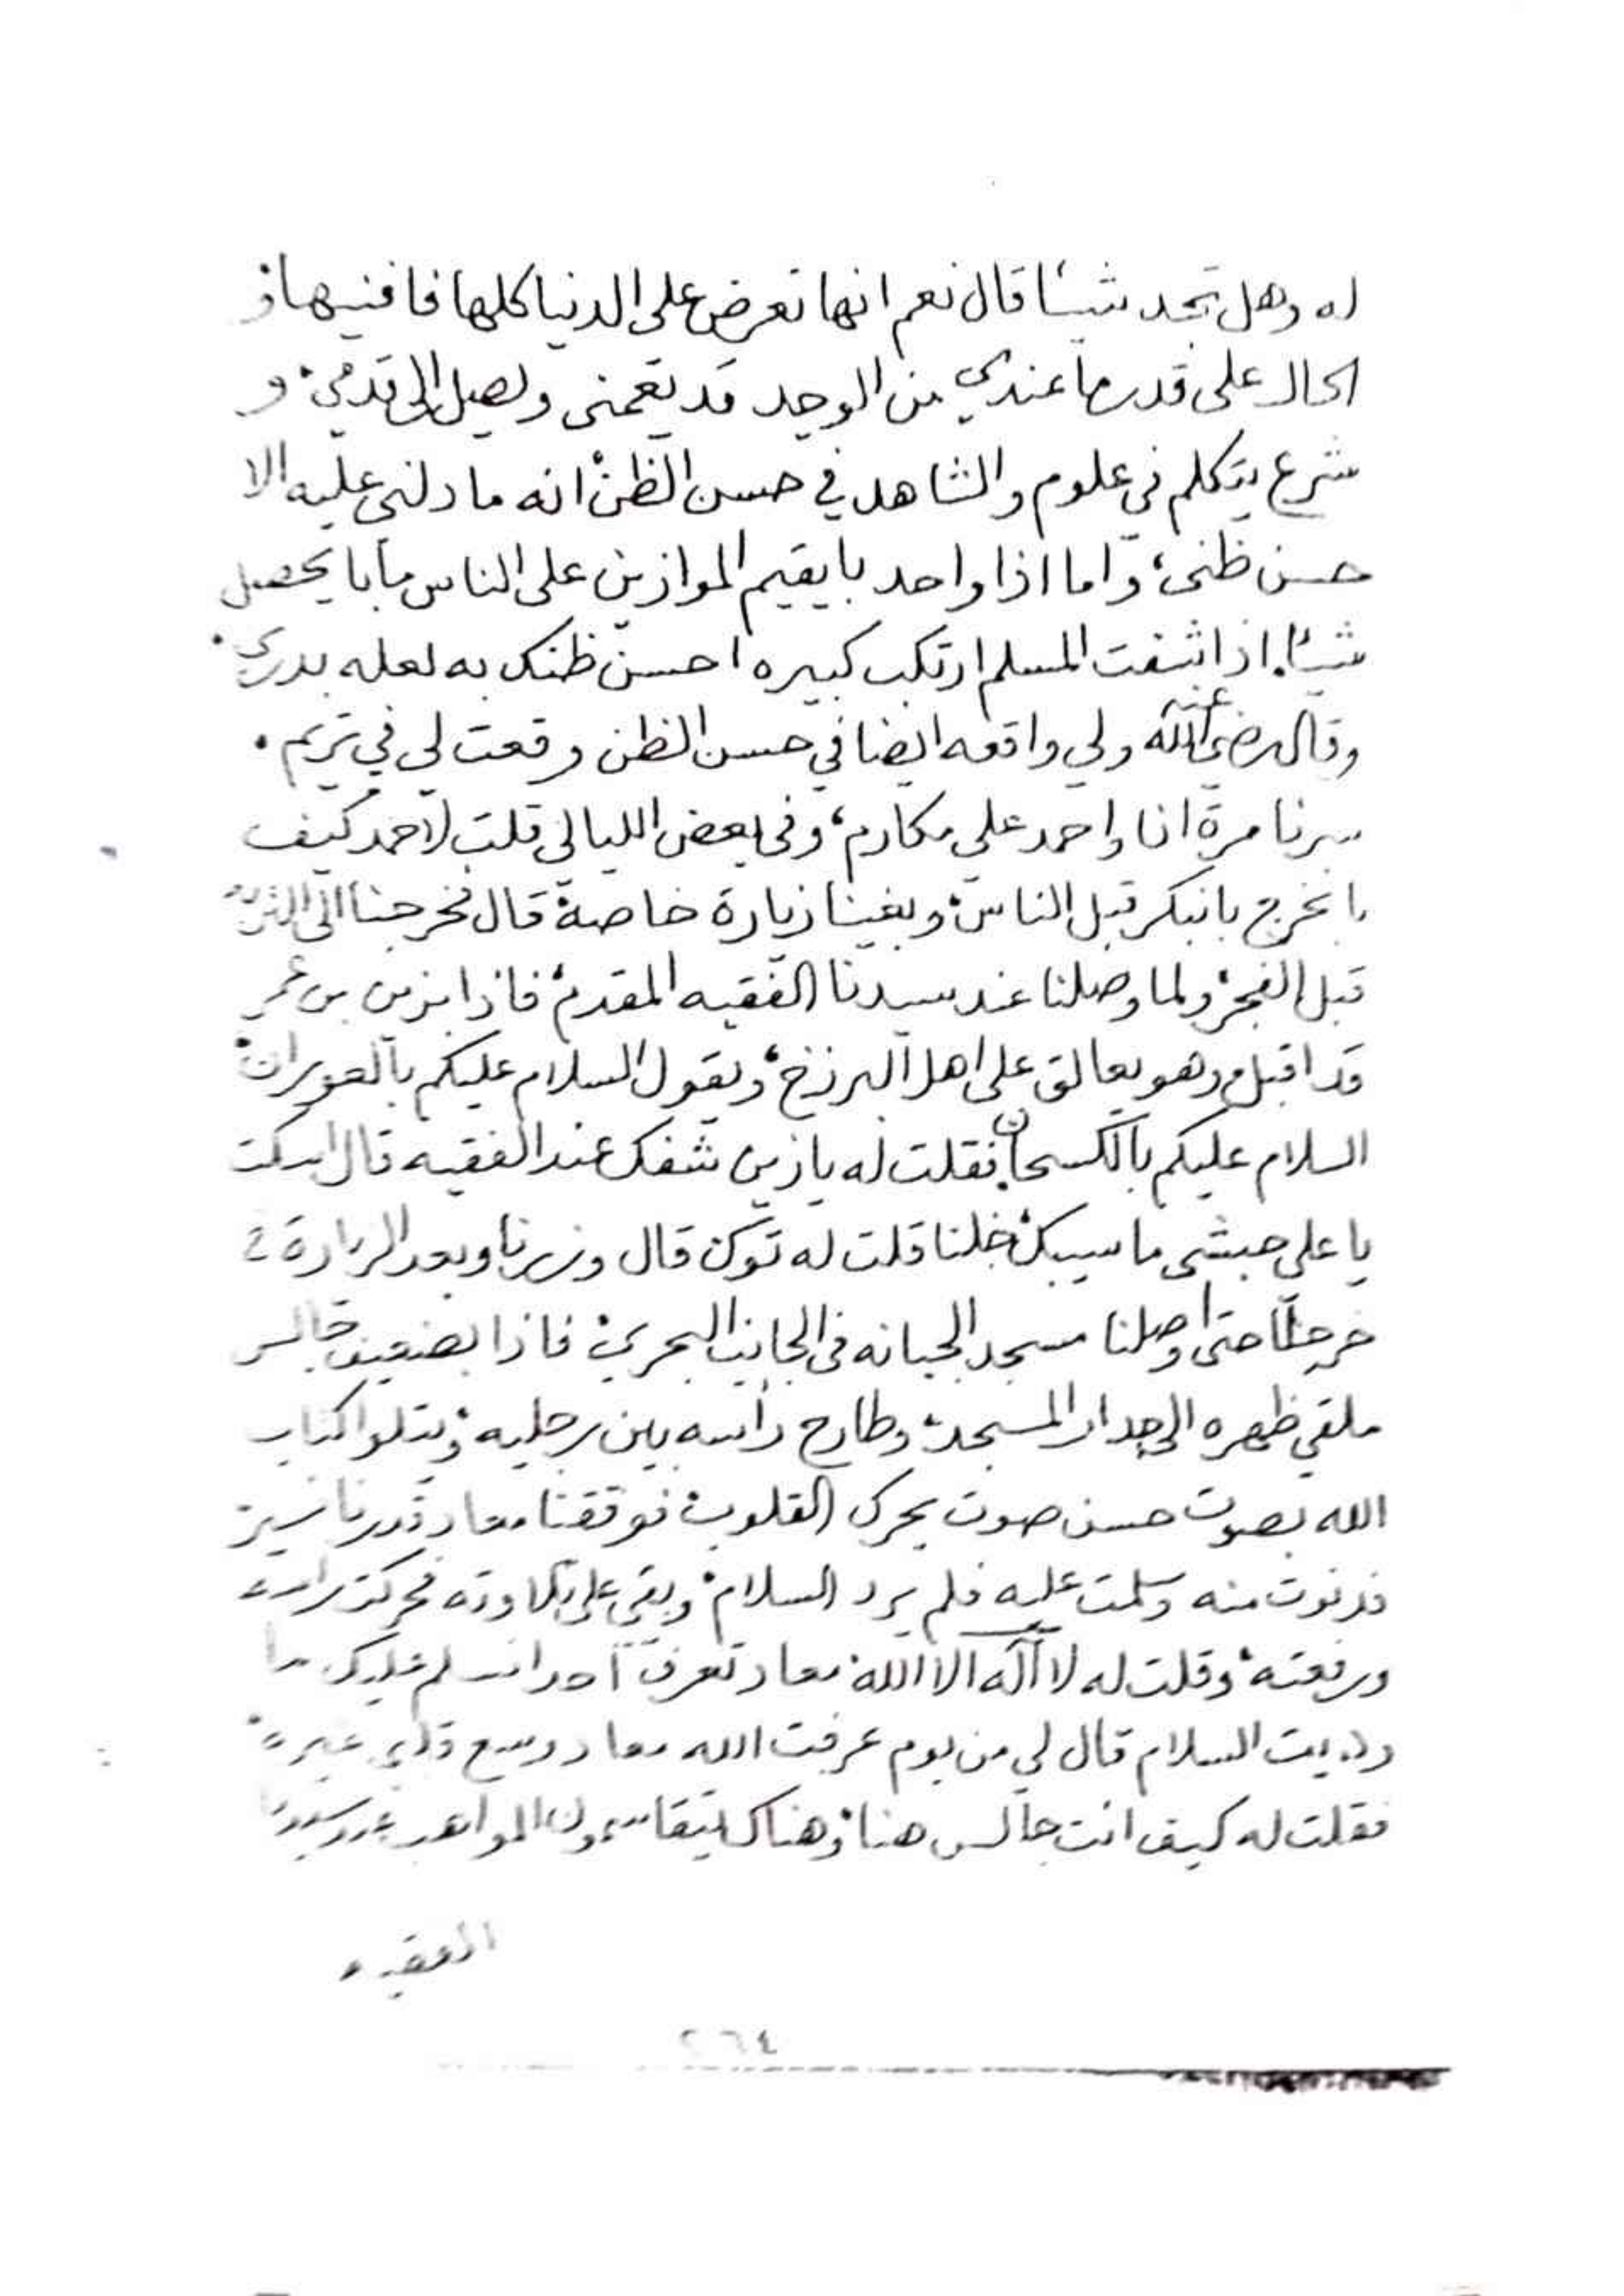 له وهل تجد شيئا قال نعم انها تعرض علي الدنيا كلها فافنيها في
الحال على قدر ما عندي من الوجد قد يعمني ويصل الى قدمي، و
شرع يتكلم في علوم والشاهد في حسن الظن، انه ما دلني عليه الا
حسن ظني، واما اذا واحد بايقيم الموازين على الناس ما با يحصل
شيئا. اذا شفت المسلم ارتكب كبيره احسن ظنك به لعله بدري.
وقال رضي الله عنه ولي واقعه ايضا في حسن الظن وقعت لي في تريم.
سرنا مرة انا واحمد علي مكارم، وفي بعض الليالي قلت لاحمد كيف
با نخرج بانبكر قبل الناس، وبغينا زيارة خاصة، قال فخرجنا الى التربة
قبل الفجر، ولما وصلنا عند سيدنا الفقيه المقدم، فاذا بزين بن عمر
قد اقبل، وهو يعالق على اهل البرزخ، ويقول السلام عليكم بالعويران،
السلام عليكم بالكسحان، فقلت له يا زين شفك عند الفقيه قال اسكت
يا علي حبشي ما سيبك، خلنا قلت له توكن قال وزرنا وبعد الزيارة
خرجنا حتى وصلنا مسجد الجبانه في الجانب البحري، فاذا بضعيف جالس
ملقي ظهره الى جدار المسجد، وطارح رأسه بين رجليه، ويتلوا كتاب
الله بصوت حسن صوت يحرك القلوب، فوقفنا معاد قدرنا نسير
فدنوت منه وسلمت عليه فلم يرد السلام، وبقي على تلاوته فحركت رأسه
ورفعته، وقلت له لا اله الا الله، معاد تعرف احد انسلم عليك ما
رديت السلام قال لي من يوم عرفت الله معاد وسع قلبي غيره،
فقلت له كيف انت جالس هنا، وهناك يتقاسمون المواهب عند سيدنا
الفقيه
٢٦٤